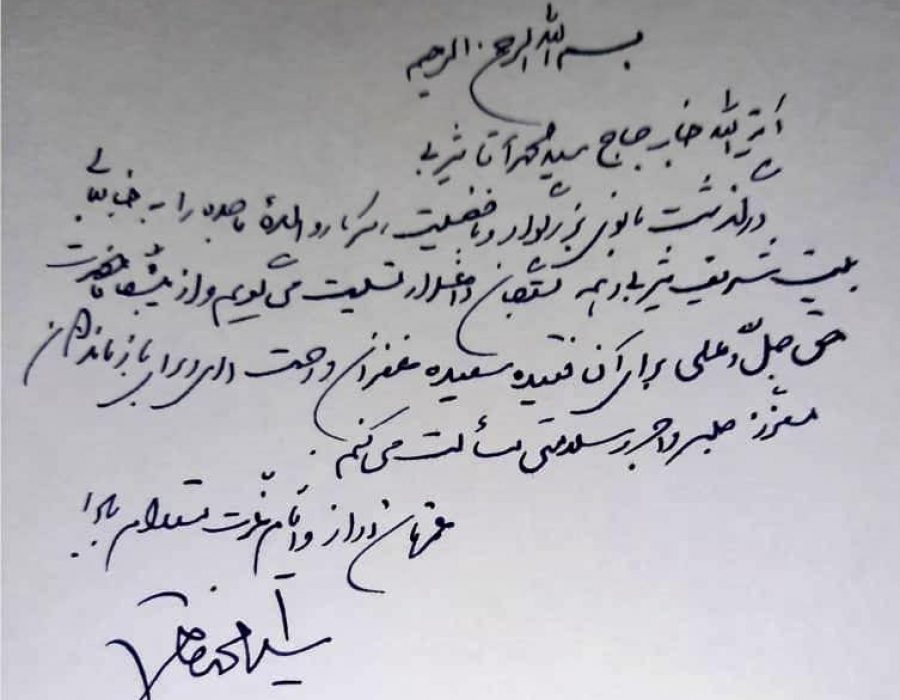 بسم الله الرحمن الرحیم
آیة الله جناب حاج سید محمد آقا یثربی
درگذشت بانوی بزرگوار و بافضیلت، سرکار والدهٔ ماجده را به جنابعالی
بیت شریف یثربی و همه بستگان داغدار تسلیت می گویم و از پیشگاه حضرت
حق جلّ و علی برای آن فقیده سعیده غفران و رحمت الهی و برای بازماندگان
معزز صبر و اجر و سلامتی مسألت می کنم.
عمرتان دراز و ایّام عزّت مستدام باد!
سید محمد